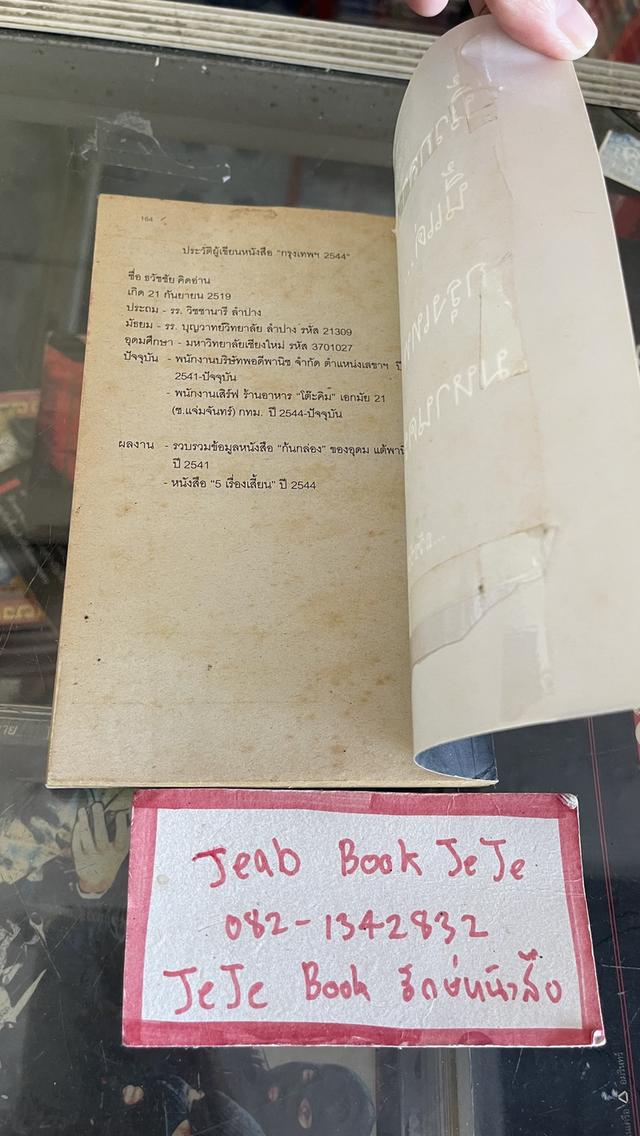 164
ประวัติผู้เขียนหนังสือ "กรุงเทพฯ 2544"
ชื่อ ธวัชชัย คิดอ่าน
เกิด 21 กันยายน 2519
ประถม - รร. วิชชานารี ลำปาง
มัธยม - รร. บุญวาทย์วิทยาลัย ลำปาง รหัส 21309
อุดมศึกษา - มหาวิทยาลัยเชียงใหม่ รหัส 3701027
ปัจจุบัน - พนักงานบริษัทพอดีพานิช จำกัด ตำแหน่งเลขาฯ ปี
2541-ปัจจุบัน
- พนักงานเสิร์ฟ ร้านอาหาร "โต๊ะคิม" เอกมัย 21
(ซ.แจ่มจันทร์) กทม. ปี 2544-ปัจจุบัน
ผลงาน - รวบรวมข้อมูลหนังสือ "กันกล่อง" ของอุดม แต้พานิ
ปี 2541
- หนังสือ "5 เรื่องเสี้ยน" ปี 2544
กรุงเทพ
มหานคร
Jeab Book JeJe
082-1342832
JeJe Book รักษ์หนังสือ
อมรินทร์